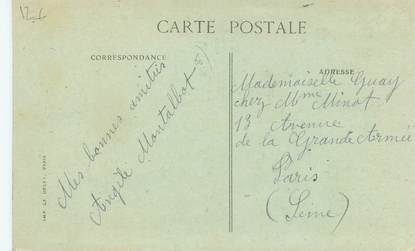 12-6
CARTE POSTALE
CORRESPONDANCE
ADRESSE
Mes bonnes amitiés
Angèle Montalbot
Mademoiselle Guay
chez Mme Minot
13 Avenue
de la Grande Armée
Paris
(Seine)